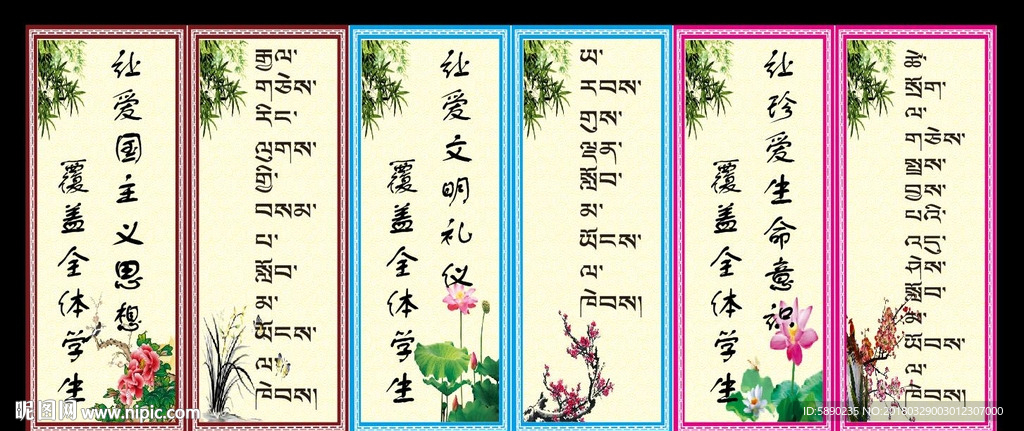 让爱国主义思想
覆盖全体学生
རྒྱལ་
གཅེས་
རིང་
ལུགས་
ཀྱི་
བསམ་
པ་
སློབ་
མ་
ཡོངས་
ལ་
ཁེབས།
让爱文明礼仪
覆盖全体学生
ཡ་
རབས་
གུས་
ལྡན་
སློབ་
མ་
ཡོངས་
ལ་
ཁེབས།
让珍爱生命意识
覆盖全体学生
ཚེ་
སྲོག་
ལ་
གཅེས་
སྤྲས་
བྱས་
པའི་
འདུ་
ཤེས་
སློབ་
མ་
ཡོངས་
ལ་
ཁེབས།
昵图网 www.nipic.com
ID:5890235 NO:20180329003012307000